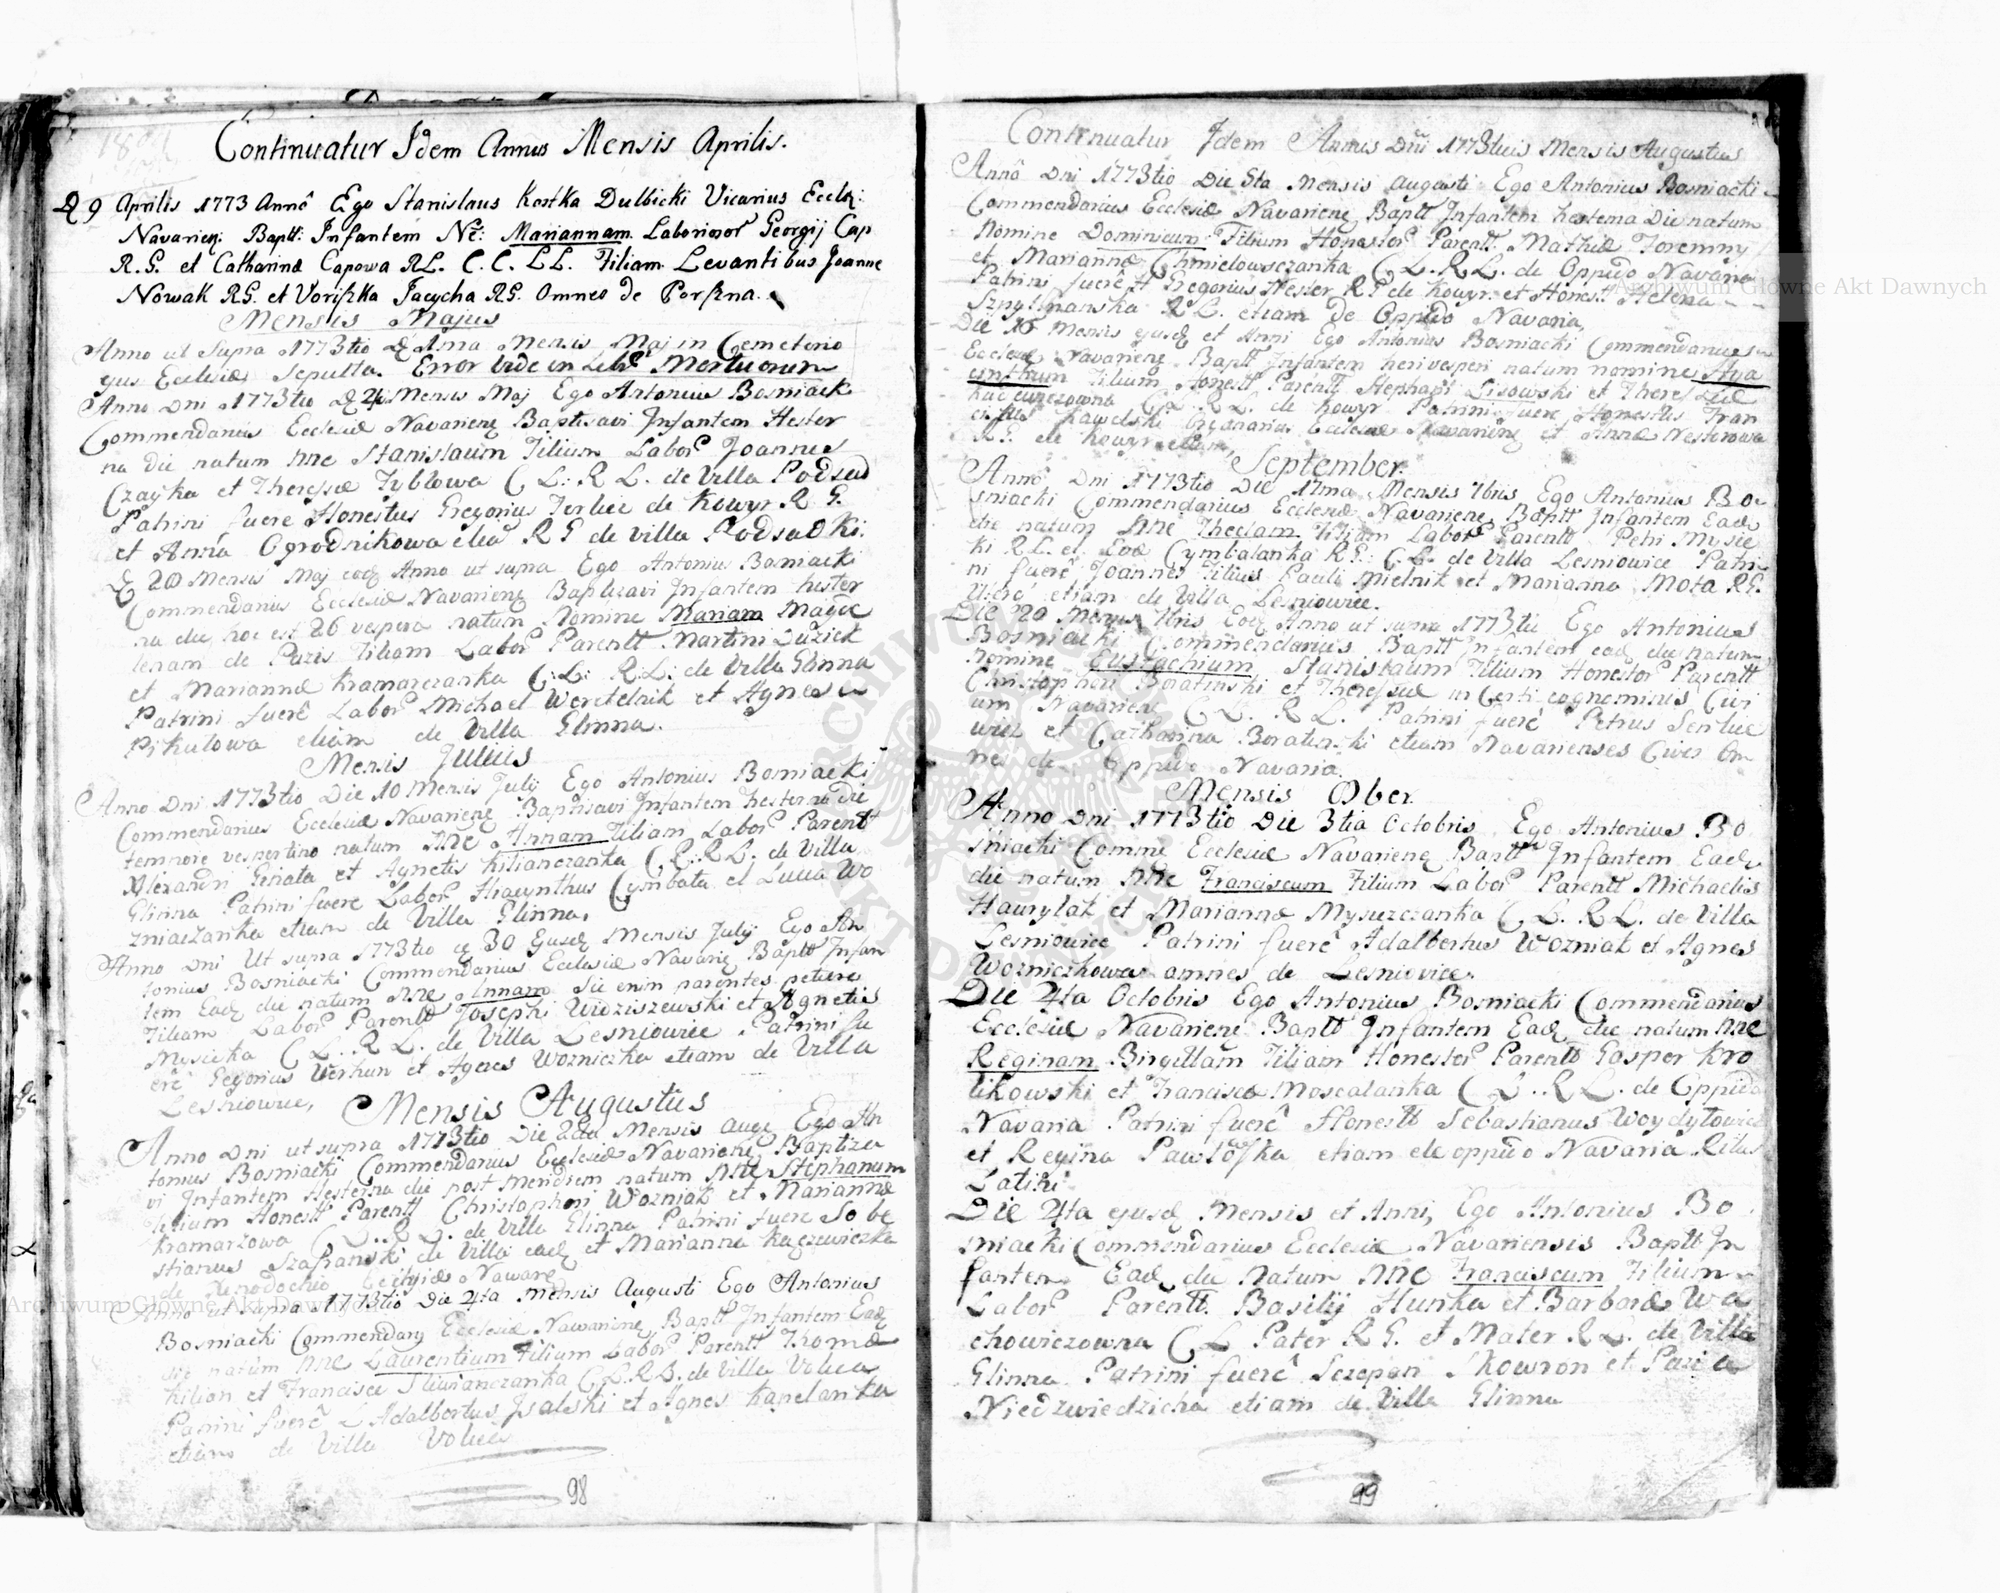 Continuatur Idem Annus Mensis Aprilis.
D 9 Aprilis 1773 Annô Ego Stanislaus Kostka Dulbicki Vicarius Eccln:
Navarien: Baptt: Infantem Nê: Mariannam Laboriosor Georgij Cap
R. G. et Catharinæ Capowa RL. C. C. L L. Filiam Levantibus Joanne
Nowak RG. et Voriszka Jacycha RG. Omnes de Porszna.
Mensis Majus
Anno ut Supra 1773tio Mensis Maj in Cemeterio
ejus Ecclesiæ Sepulta. Error vide in Mortuorum
Anno Dni 1773tio Mensis Maj Ego Antonius Bosniack
Commendarius Ecclesiæ Navarienę Baptisavi Infantem Hester
na die natum nne Stanislaum Filium Labor Joannis
Czayka et Theressæ Fyblowa C L. R L. de Villa Podsad
Patrini fuere Honestus Gregorius Terliec de Kowyr R G.
et Anna Ogrodnikowa R G de villa Podsadki.
D 20 Mensis Maj Anno ut supra Ego Antonius Bosniacki
Commendarius Ecclesiæ Navarienę Baptizavi Infantem hester
na die hoc est 26 vespera natum Nomine Mariam Magda
lenam de Pazis Filiam Labor Parentt Martini Duziek
et Mariannæ Kramarczanka C: L: R. L.: de Villa Glinna
Patrini fuerê Labor Michael Weretelnik et Agnes
Pikulowa etiam de Villa Glinna.
Mensis Julius
Anno Dni 1773tio Die 10 Mensis Julij Ego Antonius Bosniacki
Commendarius Ecclesiæ Navarienę Baptisavi Infantem hesterna Die
tempore vespertino natum nne Annam Filiam Labor Parentt
Alexandri et Agnetis Kilianczanka C. R. R L. de Villa
Glinna Patrini fuere Labor Hiacynthus Cymbala et Lucia Wo
zniaczanka etiam de Villa Glinna.
Anno Dni Ut supra 1773tio 30 Ejusd Mensis Julij Ego An
tonius Bosniacki Commendarius Ecclesiæ Navarię Baptt Infan
tem Ead die natum nne Annam Sic enim parentes petiere
Filiam Labor Parentt Josephi Widziszewski et Agnetis
Mysicka C L. R L. de Villa Lesniowice Patrini fu
erê Gegorius Werhun et Agnes Wozniczka etiam de Villa
Lesniowice,
Mensis Augustus
Anno Dni ut supra 1773tio Die 2da Mensis Ego An
tonius Bosniacki Commendarius Ecclesiæ Navarienę Baptiza
vi Infantem Hesterna die post natum nne Stephanum
Filium Honestt Parentt Christophori Wozniak et Mariannæ
Kramarzowa C L. R L. de Villa Glinna Patrini fuere Sobe
stianus Szafranski de Villa ead et Marianna Kaczewiczka
de Xenodochio
Anno ut supra 1773tio Die 4ta Mensis Augusti Ego Antonius
Bosniacki Commendary Ecclesiæ Nawarienę Baptt Infantem Ead
die natum nne Laurentium Filium Labor Parentt Thomæ
Kilion et Francisce C L. R L. de Villa Volica
Patrini fuerê L Adalbertus Jsalski et Agnes Kapelanka
etiam de Villa Volica
98
Continuatur Idem Annus Dni 1773tius Mensis Augustus
Annô Dni 1773tio Die 5ta Mensis Augusti Ego Antonius Bosniacki
Commendarius Ecclesiæ Navarienę Baptt Infantem hesterna Die natum
Nomine Dominicum Filium Honestor Parentt Mathiæ Foremny
et Mariannæ Chmielowsczanka C L. R L. de Oppido Navaria
Patrini fuerê H Gregorius Mester R G de Kowyr et Honestt Helena
R L. etiam de Oppido Navaria,
Die 16 Mensis ejusd et Anni Ego Antonius Bosniacki Commendarius
Ecclesiæ Navarienę Baptt Infantem heri vesperi natum nomine Hya
cinthum Filium Honestt Parentt Stephani Lisowski et Theressiæ
C L. R L. de Kowyr Patrini fuere Honestus Fran
ciscus Organarius Ecclesiæ Navarienę et Anna Nesterowa
R G. de Kowyr etiam,
September.
Annô Dni 1773tio Die 17ma Mensis 7bris Ego Antonius Bo
sniacki Commendarius Ecclesiæ Navarienę Baptt Infantem Ead
die natum nne Theclam Filiam Labor Parentt Petri Mysic
ki R L. et Cymbalanka R G. C. L. de Villa Lesniowice Patri
ni fuerê Joannes Filius Pauli Mielnik et Marianna Mota R G.
etiam de Villa Lesniowice.
Die 20 Mensis 7bris Eod Anno ut supra 1773tii Ego Antonius
Bosniacki Commendarius Baptt Infantem ead die natum
nomine Eustachium Stanislaum Filium Honestor Parentt
Christopheri Boratinski et Theressiæ in Certi cognominis Civi
um Navarienę C L. R L. Patrini fuerê Petrus
wicz et Catharina Boratinski etiam Navarienses Cives Om
nes de Oppido Navaria.
Mensis Ober.
Anno Dni 1773tio Die 3tia Octobris Ego Antonius Bo
sniacki Comme Ecclesiæ Navarienę Baptt Infantem Ead
die natum nne Franciscum Filium Labor Parentt Michaelis
Hawrylak et Mariannæ Mysuzczanka C L. R L. de Villa
Lesniowice Patrini fuerê Adalbertus Wozniak et Agnes
Wozniczkowa omnes de Lesniovice.
Die 4ta Octobris Ego Antonius Bosniacki Commendarius
Ecclesiæ Navarienę Baptt Infantem Ead die natum nne
Reginam Birgittam Filiam Honestor Parentt Gasper Kro
likowski et Franciscæ Moscalanka C L. R L. de Oppido
Navaria Patrini fuerê Honestt Sebastianus Woydylowicz
et Regina Pawłoska etiam de oppido Navaria Ritus
Latini
Die 4ta ejusd Mensis et Anni, Ego Antonius Bo
sniacki Commendarius Ecclesiæ Navariensis Baptt In
fantem Ead die natum nne Franciscum Filium
Labor Parentt. Basilij Hunka et Barbaræ Wa
chowiczowna C L Pater R G. et Mater R L. de Villa
Glinna Patrini fuerê Sczepan Skowron et Pazia
Niedzwiedzicha etiam de Villa Glinna
99
Archiwum Główne Akt Dawnych